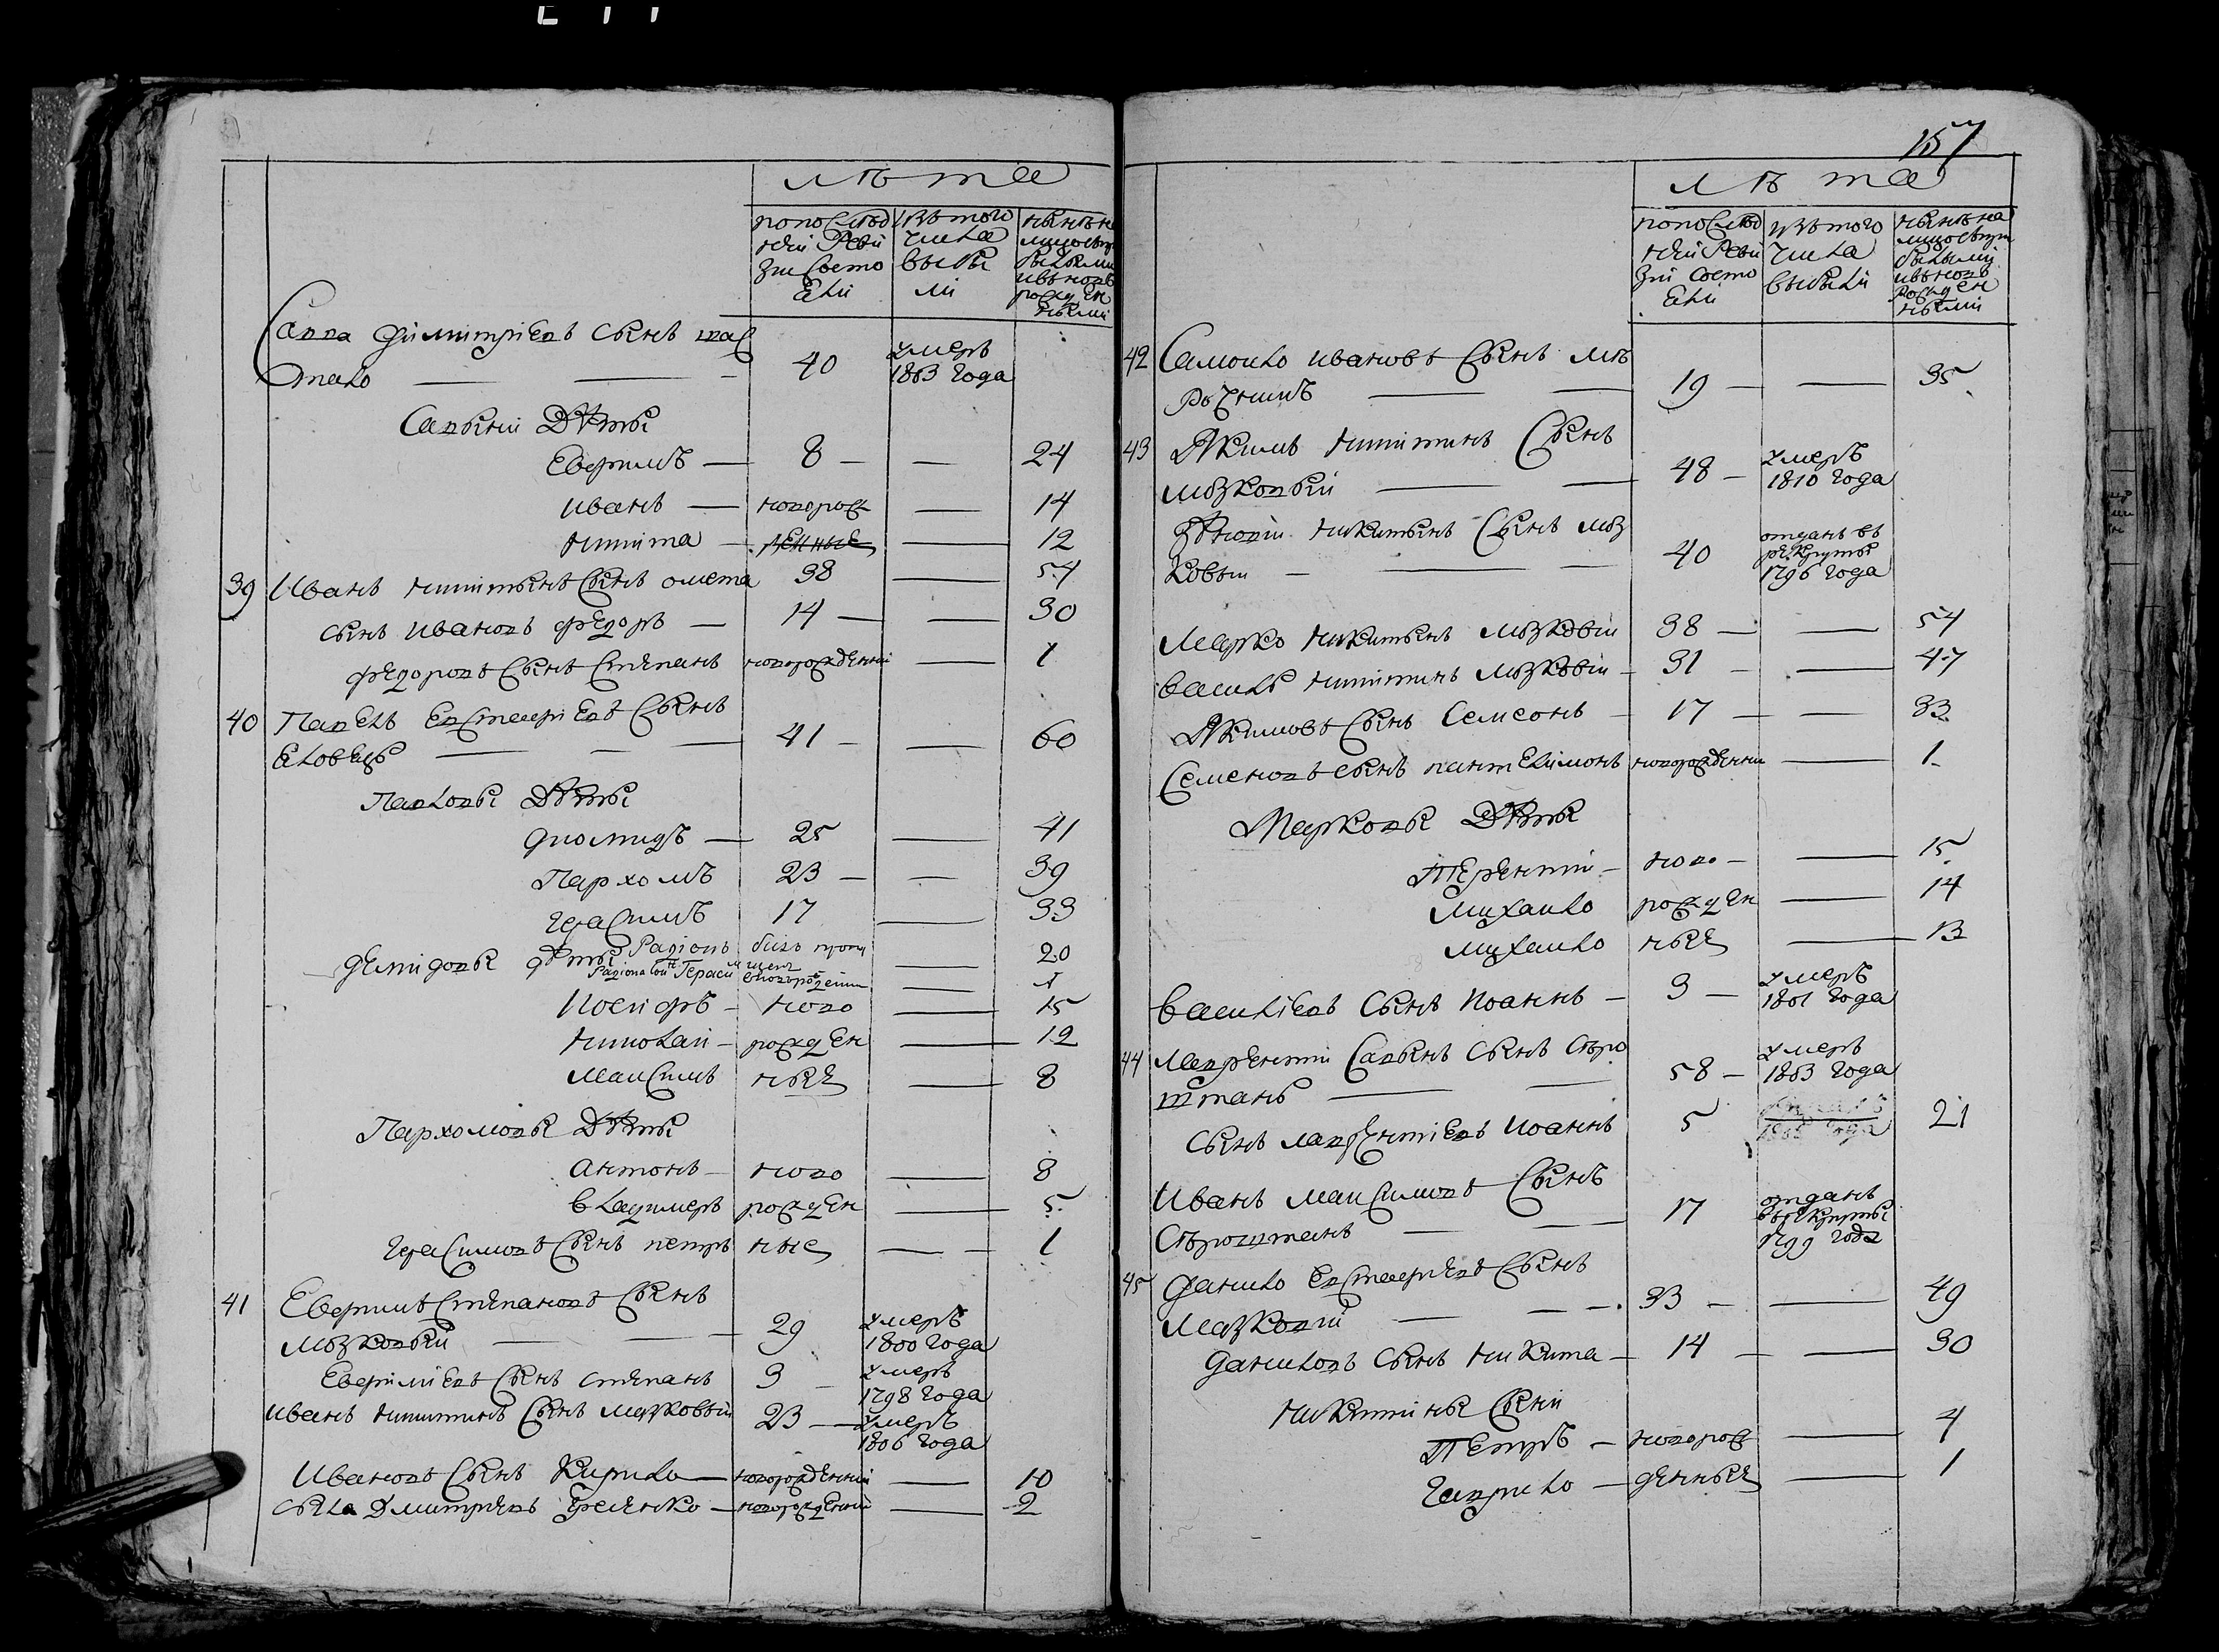 лѣта
по последней Ревизии состояли
изъ того числа выбыли
ныне на лицо съ прибылыми и въ новь рожденными
Савва Филиптриевъ Сынъ
40
умеръ
1803 года
Саввины Дѣти
Ефримъ — 8 — — 24
иванъ — новорож — 14
никита — денные — 12
39 Иванъ никитынъ Сынъ омета 38 — 54
сынъ ивановъ федоръ — 14 — — 30
федоровъ Сынъ Степанъ новорожденный — 1
40 Павелъ Евстафиевъ Сынъ
еловецъ — 41 — — 60
Павловы Дѣти
Диомидъ — 25 — 41
Пархомъ 23 — — 39
Герасимъ 17 — 33
демидовы дѣти Радіонъ билъ — 20
Радіона сынъ Герасим — 1
Иосифъ — ново — 15
николай — рожден — 12
Максимъ ные — 8
Пархомовы Дѣти
антонъ — ново — 8
владимеръ рожден — 5
Герасимовъ Сынъ петръ ные — — 1
41 Ефримъ Степановъ Сынъ
мозковый — 29
умеръ
1800 года
Ефримиевъ Сынъ степанъ 3 —
умеръ
1798 года
Иванъ никитинъ Сынъ мазковый 23 —
умеръ
1806 года
Ивановъ Сынъ Кирило — новорожденный — 10
Дмитриевъ — новорожденный — 2
157
лѣта
по последней Ревизии состояли
изъ того числа выбыли
ныне на лицо съ прибылыми и въ новь рожденными
42 Самойло ивановъ Сынъ мѣ
рочникъ — 19 — — 35
43 Якимъ никитинъ Сынъ
мозковый — 48 —
умеръ
1810 года
никитынъ Сынъ моз
ковый — 40
отданъ въ
рекруты
1796 года
Марко никитынъ мозковый 38 — — 54
василь никитинъ мозковый — 31 — 47
Якимовъ Сынъ Семеонъ — 17 — — 33
Семеновъ сынъ пантелимонъ новорожденный — 1
Марковы Дѣти
Терентий — ново — — 15
Михайло рожден — 14
михайло ные — 13
василиевъ Сынъ Иоаннъ — 3 —
умеръ
1801 года
44 Лаврентий Саввинъ Сынъ Стро
штанъ — 58 —
умеръ
1803 года
Сынъ лаврентиевъ Иоаннъ 5 21
Иванъ Максимовъ Сынъ
Строштанъ — 17
отданъ
въ рекруты
1799 года
45 Данило Евстафиевъ Сынъ
Мазковый — 33 — — 49
Даниловъ Сынъ никита — 14 — — 30
никитины Сыны
Петръ — новорож — 4
Гаврило — денные — 1